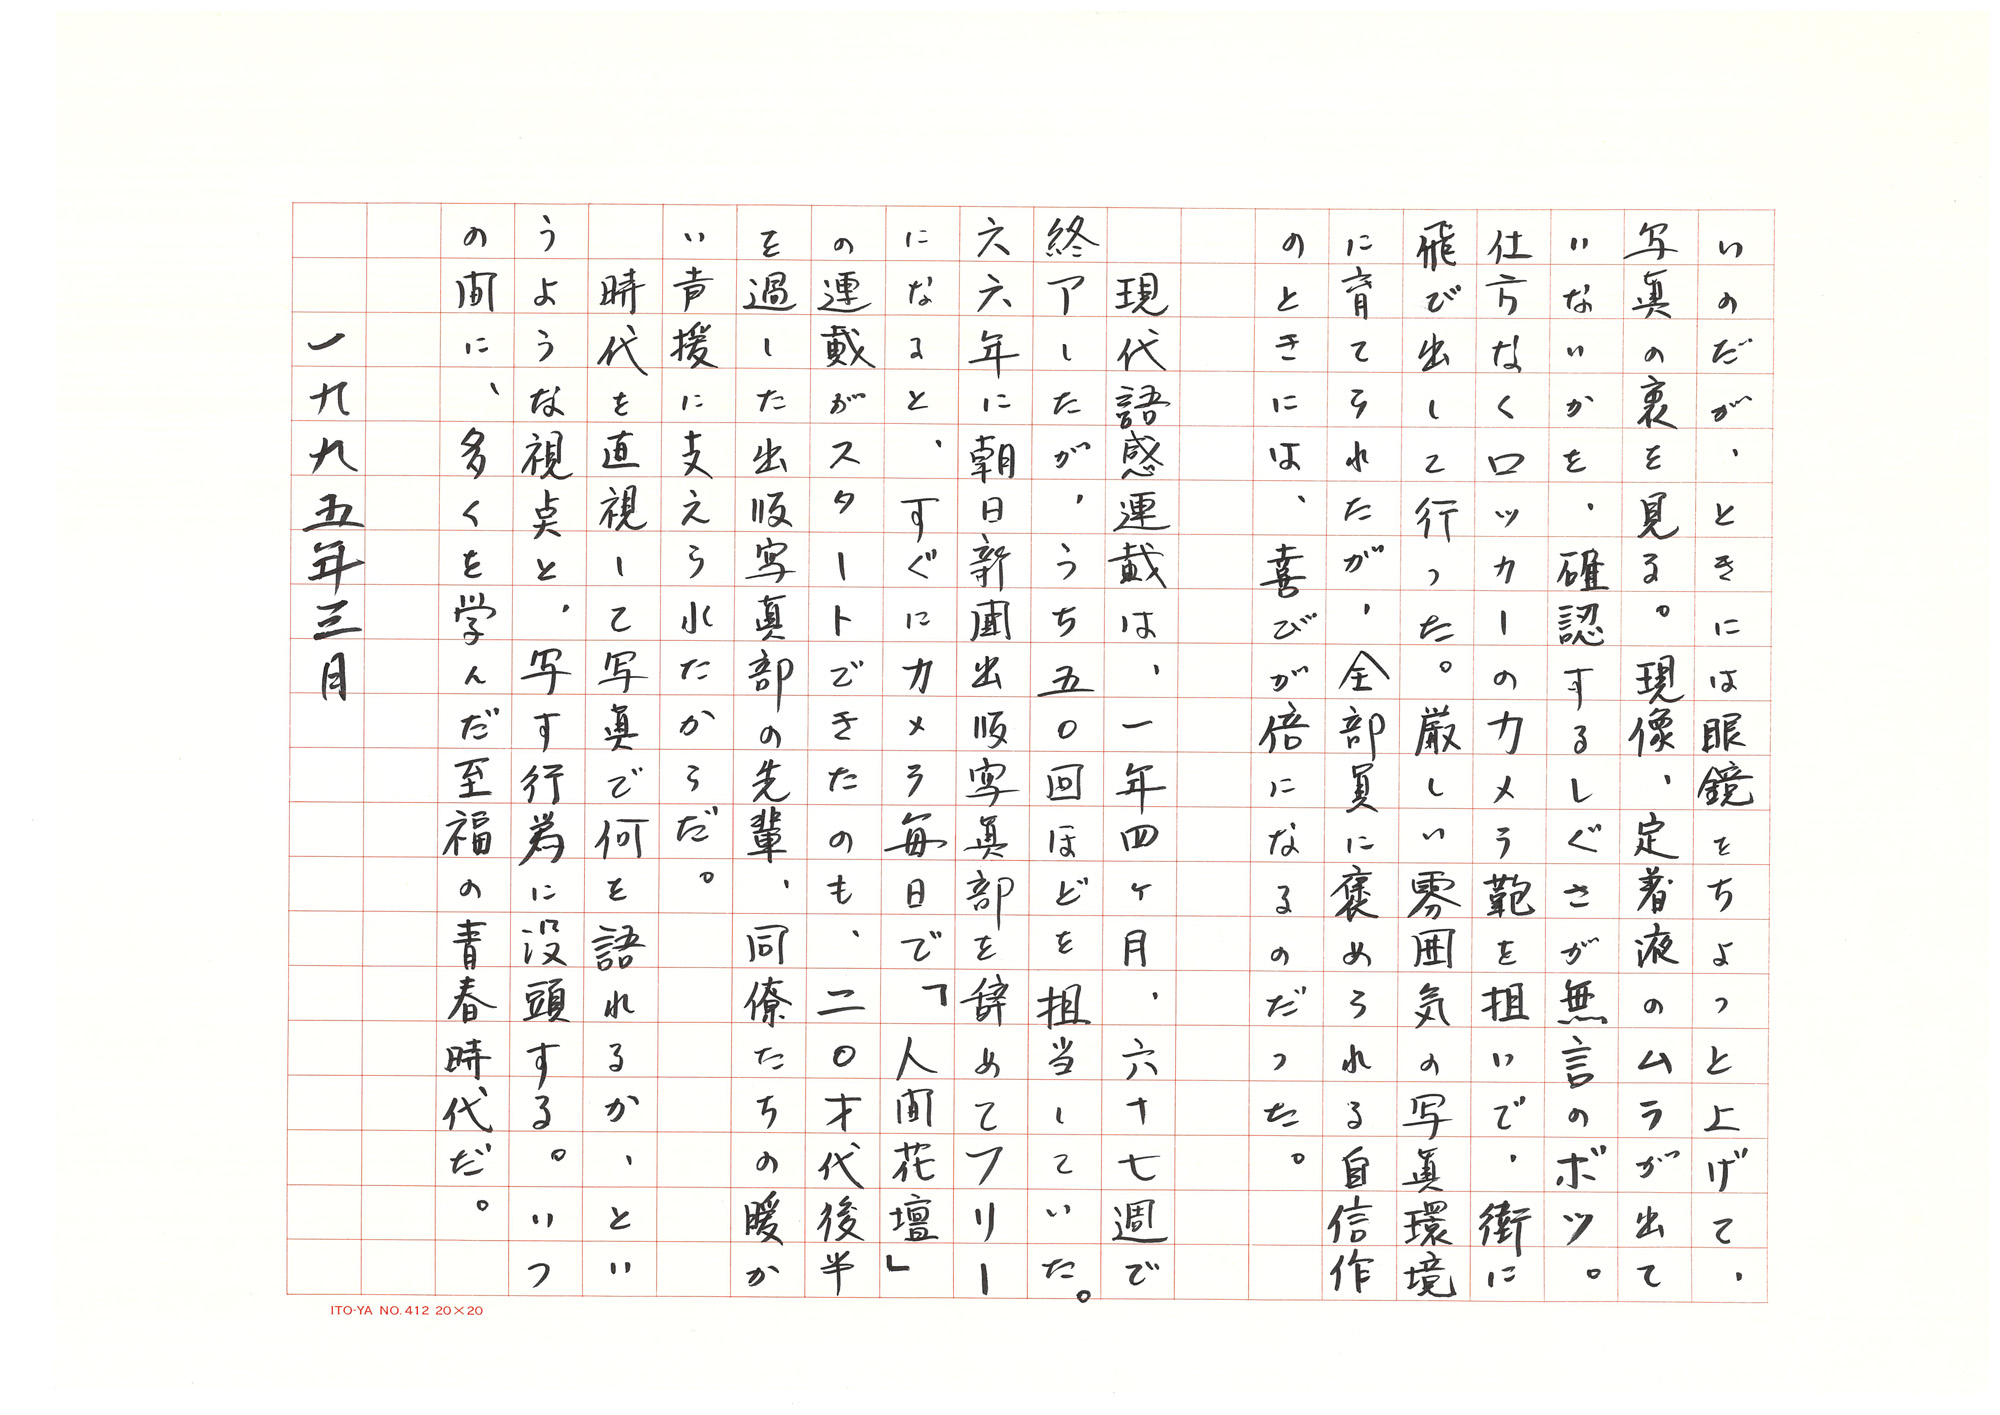 いのだが、ときには眼鏡をちょっと上げて、
写真の裏を見る。現像、定着液のムラが出て
いないかを、確認するしぐさが無言のボツ。
仕方なくロッカーのカメラ鞄を担いで、街に
飛び出して行った。厳しい雰囲気の写真環境
に育てられたが、全部員に褒められる自信作
のときには、喜びが倍になるのだった。
現代語感連載は、一年四ヶ月、六十七週で
終了したが、うち五〇回ほどを担当していた。
六六年に朝日新聞出版写真部を辞めてフリー
になると、すぐにカメラ毎日で「人間花壇」
の連載がスタートできたのも、二〇才代後半
を過した出版写真部の先輩、同僚たちの暖か
い声援に支えられたからだ。
時代を直視して写真で何を語れるか、とい
うような視点と、写す行為に没頭する。いつ
の間に、多くを学んだ至福の青春時代だ。
一九九五年三月
ITO-YA NO.412 20×20